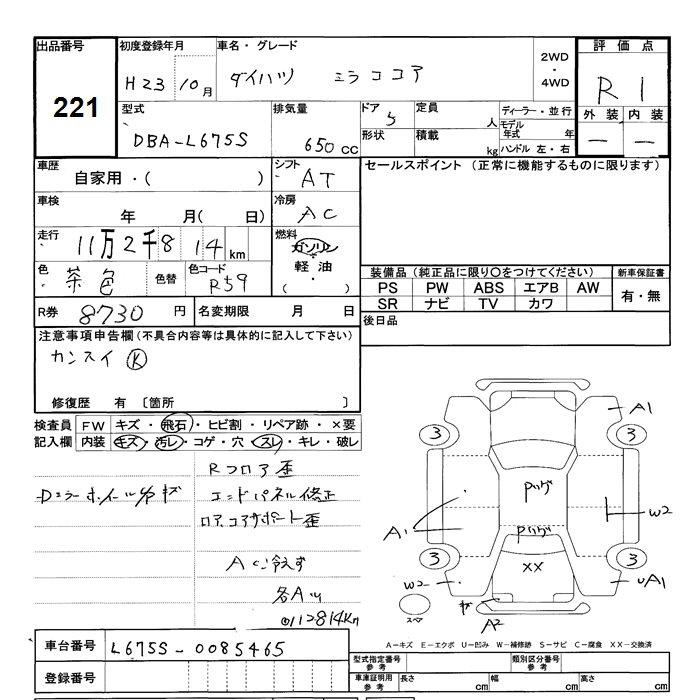 出品番号
221
初度登録年月
H23 10月
車名・グレード
ダイハツ ミラココア
2WD
・
4WD
評価点
R 1
外装 内装
— —
型式
DBA-L675S
排気量
650 cc
ドア 5
形状
定員 人
積載 kg
ディーラー・並行
モデル年式 年
ハンドル 左・右
車歴
自家用・( )
シフト
AT
車検
年 月( 日)
冷房
AC
走行
11万2千814km
燃料
ガソリン
軽油
( ・ )
色
茶色
色替
色コード
R59
R券 8730 円
名変期限 月 日
セールスポイント (正常に機能するものに限ります)
装備品(純正品に限り〇をつけてください)
PS PW ABS エアB AW
SR ナビ TV カワ
新車保証書
有・無
後日品
注意事項申告欄(不具合内容等は具体的に記入して下さい)
カンスイ K
修復歴 有 〔箇所 〕
検査員記入欄
FW キズ・飛石・ヒビ割・リペア跡・×要
内装 キズ・汚レ・コゲ・穴・スレ・キレ・破レ
Rフロア歪
Dミラーホイールカバキズ
エンドパネル修正
ロア、コアサポート歪
AC冷えず
各Aツ
0112814Km
A1
3
3
Pツゲ
A1
W2
Pツゲ
3
3
XX
W2
UA1
キズ
A2
スペア
A－キズ E－エクボ U－凹み W－補修跡 S－サビ C－腐食 XX－交換済
車台番号 L675S-0085465
登録番号
型式指定番号 参考
類別区分番号 参考
車庫証明用 参考
長さ cm 幅 cm 高さ cm